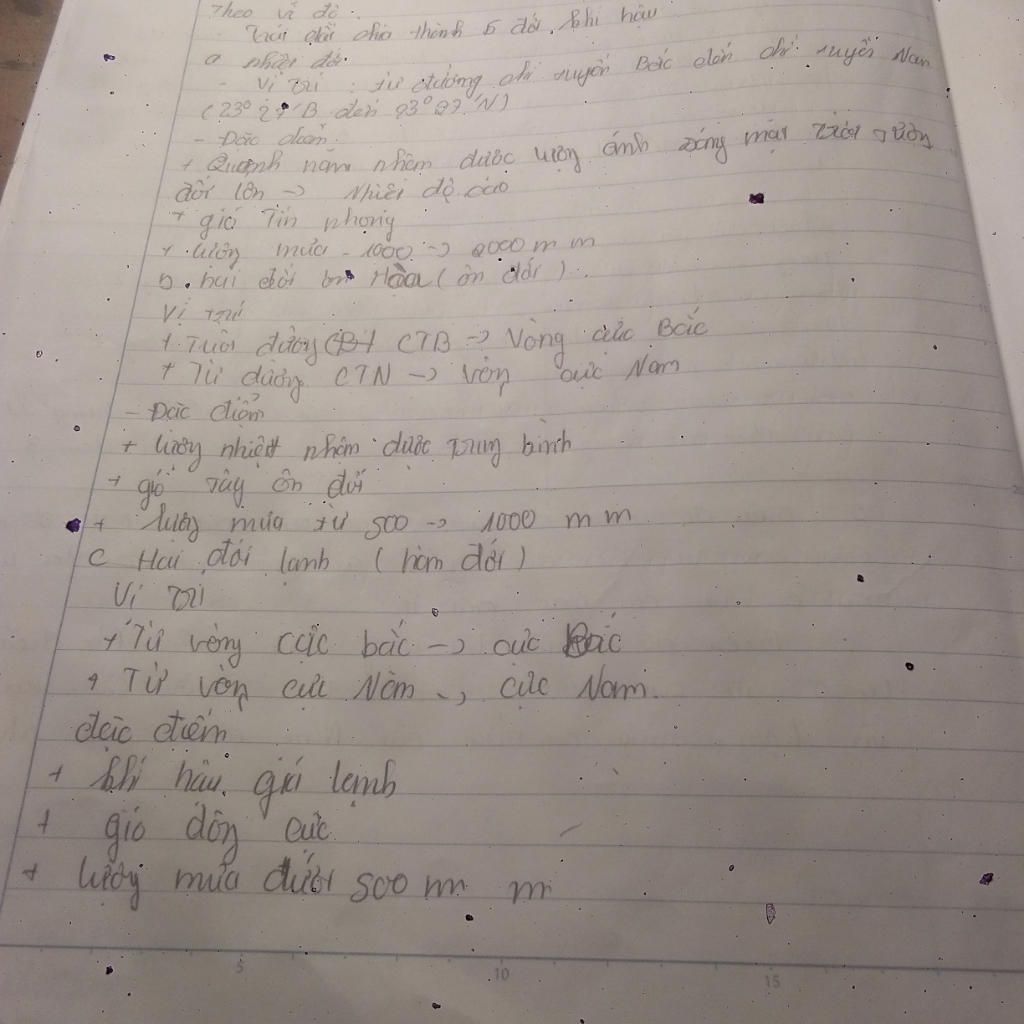 Theo vĩ độ.
- Trái đất chia thành 5 đới khí hậu
a nhiệt đới
- Vị trí : từ đường chí tuyến Bắc đến chí tuyến Nam
(23° 27'B đến 23° 27'N)
- Đặc điểm
+ Quanh năm nhậm được lượng ánh sáng mặt trời tương
đối lớn -> Nhiệt độ cao
+ gió Tín phong
+ lượng mưa - 1000 -> 2000 m m
b. hai đới ôn Hòa (ôn đới).
Vị trí
+ đường CTB -> Vòng cực Bắc
+ Từ đường CTN -> vòng cực Nam
- Đặc điểm
+ lượng nhiệt nhậm được trung bình
+ gió Tây ôn đới
+ lượng mưa từ 500 -> 1000 m m
C Hai đới lạnh (hàn đới)
Vị trí
+ Từ vòng cực bắc -> cực Bắc
+ Từ vòng cực Nam -> cực Nam.
đặc điểm
+ khí hậu giá lạnh
+ gió đông cực
+ lượng mưa dưới 500 m m
5 10 15